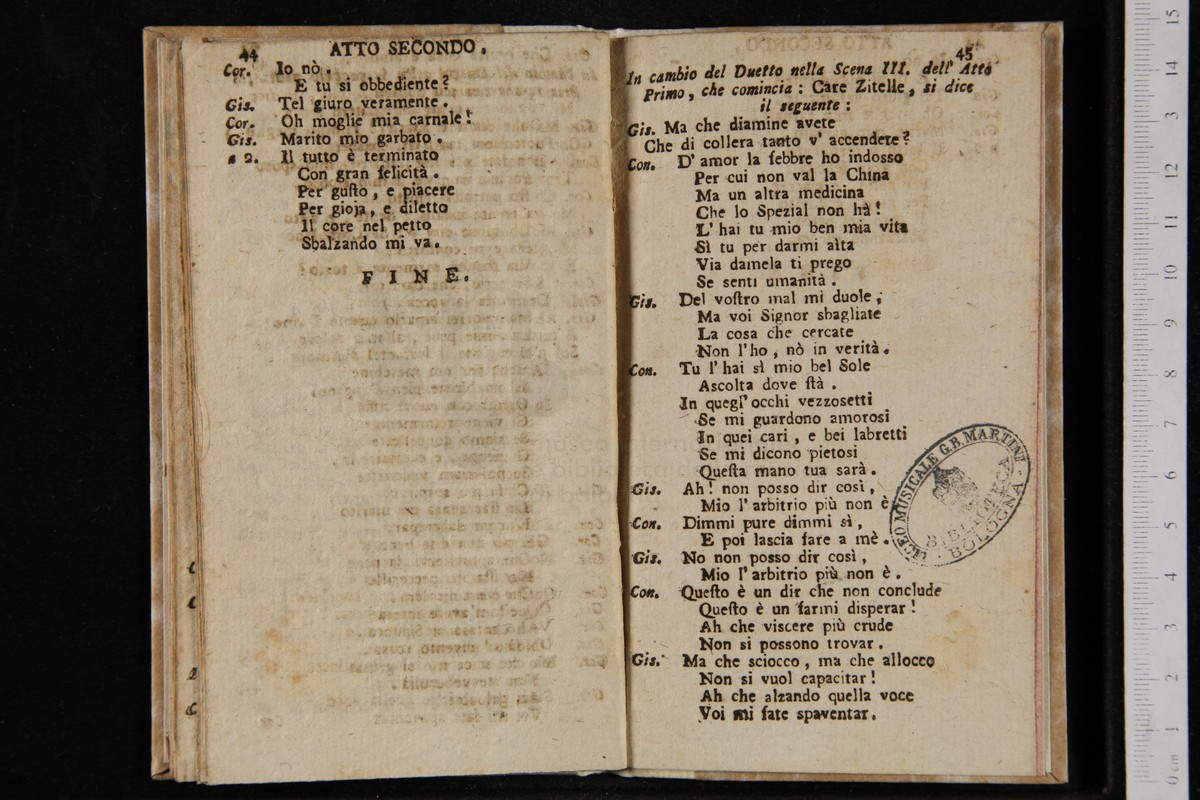 44
ATTO SECONDO.
Cor. Io nò.
E tu si obbediente?
Gis. Tel giuro veramente.
Cor. Oh moglie mia carnale!
Gis. Marito mio garbato.
a 2. Il tutto è terminato
Con gran felicità.
Per guſto, e piacere
Per gioja, e diletto
Il core nel petto
Sbalzando mi va.
FINE.
45
In cambio del Duetto nella Scena III. dell' Atto
Primo, che comincia: Care Zitelle, si dice
il seguente:
Gis. Ma che diamine avete
Che di collera tanto v' accendete?
Con. D' amor la febbre ho indosso
Per cui non val la China
Ma un altra medicina
Che lo Spezial non hà!
L' hai tu mio ben mia vita
Sì tu per darmi aita
Via damela ti prego
Se senti umanità.
Gis. Del voſtro mal mi duole;
Ma voi Signor sbagliate
La cosa che cercate
Non l'ho, nò in verità.
Con. Tu l' hai sì mio bel Sole
Ascolta dove ſtà.
In quegl' occhi vezzosetti
Se mi guardono amorosi
In quei cari, e bei labretti
Se mi dicono pietosi
Queſta mano tua sarà.
Gis. Ah! non posso dir così,
Mio l' arbitrio più non è
Con. Dimmi pure dimmi sì,
E poi lascia fare a mè.
Gis. No non posso dir così,
Mio l' arbitrio più non è.
Con. Queſto è un dir che non conclude
Queſto è un farmi disperar!
Ah che viscere più crude
Non si possono trovar.
Gis. Ma che sciocco, ma che allocco
Non si vuol capacitar!
Ah che alzando quella voce
Voi mi fate spaventar.
LICEO MUSICALE G.B. MARTINI
BIBLIOTECA
BOLOGNA
0 cm 1 2 3 4 5 6 7 8 9 10 11 12 13 14 15